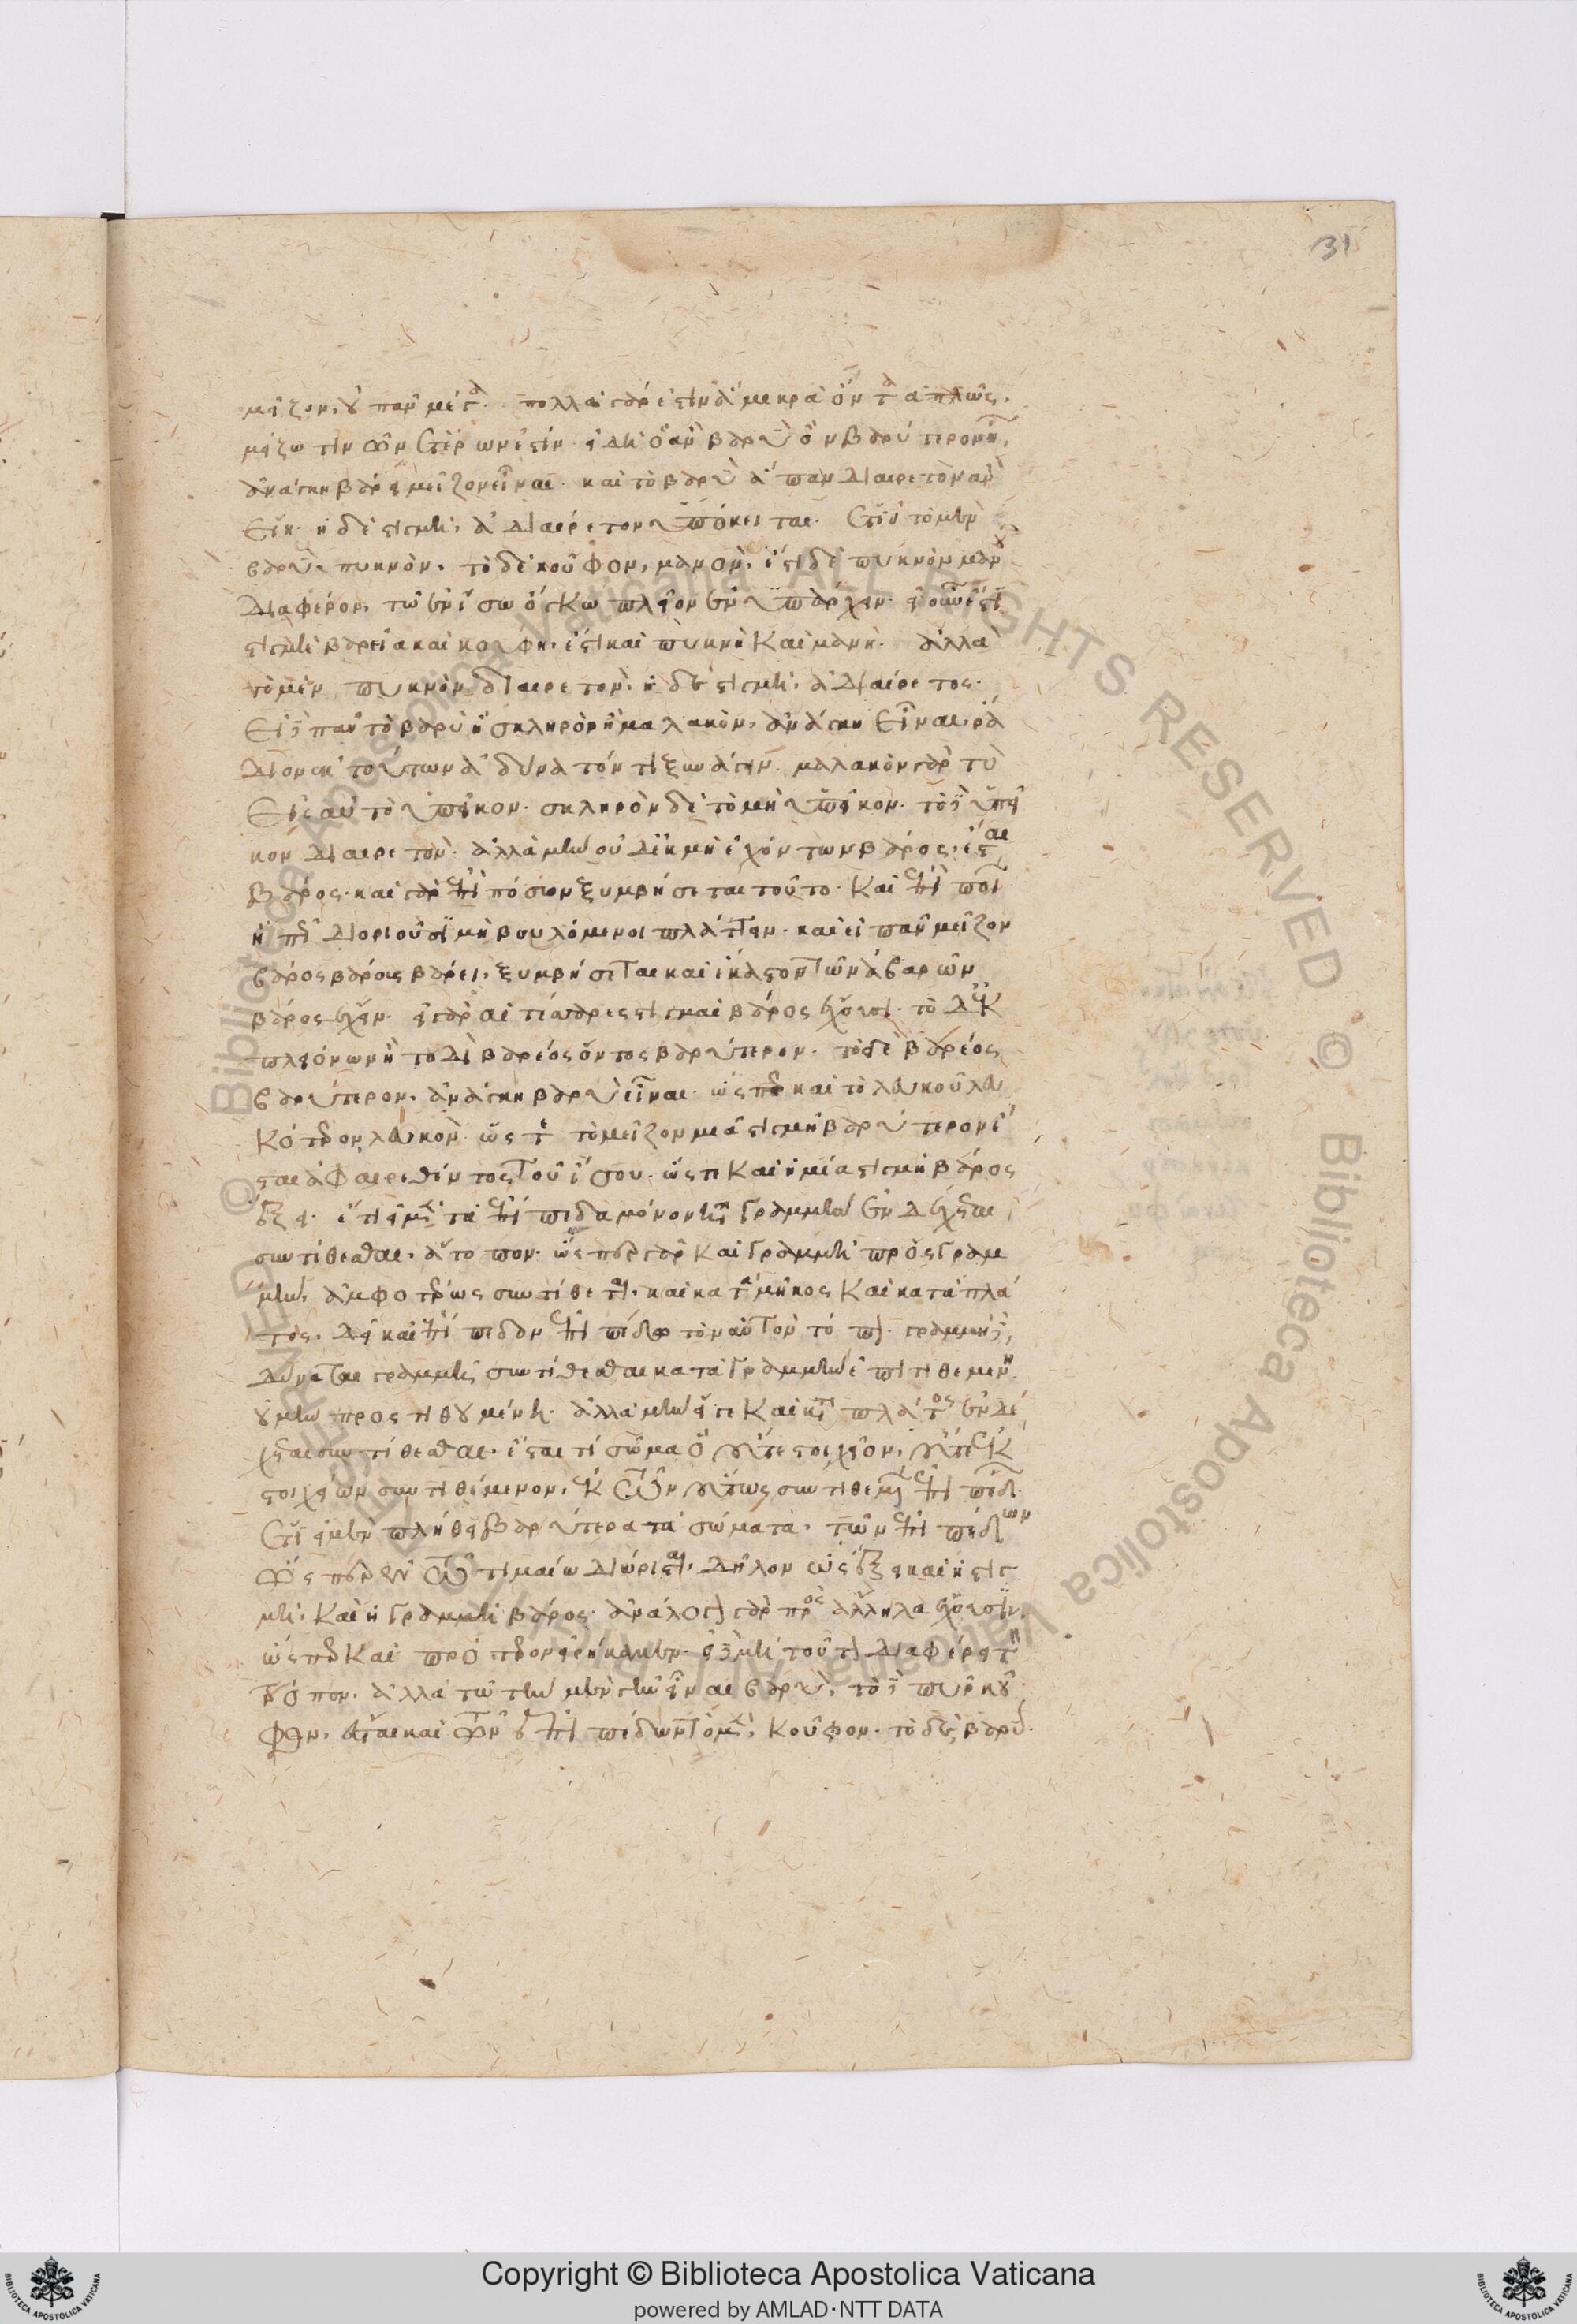 μεῖζον, οὐ πᾶν μέγα. πολλὰ γάρ ἐστιν ἃ μικρὰ ὄντα ἁπλῶς,
μείζω τινῶν ἑτέρων ἐστίν. εἰ δὴ ὃ ἂν βαρὺ ὂν βαρύτερον ᾖ,
ἀνάγκη βάρει μεῖζον εἶναι. καὶ τὸ βαρὺ ἅπαν διαιρετὸν ἂν
εἴη. ἡ δὲ στιγμὴ, ἀδιαίρετον ὑπόκειται. ἔτι εἰ τὸ μὲν
βαρὺ, πυκνὸν, τὸ δὲ κοῦφον, μανὸν, ἔστι δὲ πυκνὸν μανοῦ
διαφέρον, τῷ ἐν ἴσῳ ὄγκῳ πλεῖον ἐνυπάρχειν. εἰ οὖν ἐστὶ
στιγμὴ βαρεῖα καὶ κούφη, ἔστι καὶ πυκνὴ καὶ μανή. ἀλλὰ
τὸ μὲν πυκνὸν διαιρετὸν, ἡ δὲ στιγμὴ, ἀδιαίρετος.
εἰ δὲ πᾶν τὸ βαρὺ ἢ σκληρὸν ἢ μαλακὸν, ἀνάγκη εἶναι, ῥά
διον ἐκ τούτων ἀδύνατόν τι ξυνάγειν. μαλακὸν γὰρ τὸ
εἰς αὑτὸ ὑπεῖκον. σκληρὸν δὲ τὸ μὴ ὑπεῖκον. τὸ δὲ ὑπεῖ
κον διαιρετόν. ἀλλὰ μὴν οὐδ' ἐκ μὴ ἐχόντων βάρος, ἔσται
βάρος. καὶ γὰρ ἐπὶ πόσων ξυμβήσεται τοῦτο. καὶ ἐπὶ ποί
πῶς διοριοῦσι μὴ βουλόμενοι πλάττειν. καὶ εἰ πᾶν μεῖζον
βάρος βάρους βάρει, ξυμβήσεται καὶ ἕκαστον τῶν ἀβαρῶν
βάρος ἔχειν. εἰ γὰρ αἱ τέσσαρες στιγμαὶ βάρος ἔχουσι. τὸ δ' ἐκ
πλειόνων ἢ τοδὶ βαρέος ὄντος βαρύτερον. τὸ δὲ βαρέος
βαρύτερον, ἀνάγκη βαρὺ εἶναι. ὥσπερ καὶ τὸ λευκοῦ λευ
κότερον, λευκὸν. ὥστε τὸ μεῖζον μιᾷ στιγμῇ βαρύτερον ἔ
σται ἀφαιρεθέντος τοῦ ἴσου. ὥστε καὶ ἡ μία στιγμὴ βάρος
ἕξει. ἔτι εἰ μὲν τὰ ἐπίπεδα μόνον κατὰ γραμμὴν ἐνδέχεται
συντίθεσθαι, ἄτοπον. ὥσπερ γὰρ καὶ γραμμὴ πρὸς γραμ
μὴν, ἀμφοτέρως συντίθεται, καὶ κατὰ μῆκος καὶ κατὰ πλά
τος. δεῖ καὶ ἐπίπεδον ἐπιπέδῳ τὸν αὐτὸν τρόπον. γραμμὴ δὲ,
δύναται γραμμῇ συντίθεσθαι κατὰ γραμμὴν ἐπιτιθεμένη.
οὐ μὴν προστιθεμένη. ἀλλὰ μὴν εἴ γε καὶ κατὰ πλάτος ἐνδέ
χεται συντίθεσθαι, ἔσται τί σῶμα ὃ οὔτε στοιχεῖον, οὔτε ἐκ
στοιχείων συντιθέμενον, ἐκ τῶν οὕτως συντιθεμένων ἐπιπέδων.
ἔτι εἰ μὲν πλήθει βαρύτερα τὰ σώματα, τῶν ἐπιπέδων
ὥσπερ ἐν τῷ τιμαίῳ διώρισται, δῆλον ὡς ἕξει καὶ ἡ στιγ
μὴ, καὶ ἡ γραμμὴ βάρος. ἀνάλογον γὰρ πρὸς ἄλληλα ἔχουσιν,
ὥσπερ καὶ πρότερον εἰρήκαμεν. εἰ δὲ μὴ τοῦτον διαφέρει τὸν
τρόπον. ἀλλὰ τῷ τὴν μὲν γῆν εἶναι βαρὺ, τὸ δὲ πῦρ κοῦ
φον, ἔσται καὶ τῶν ἐπιπέδων τὸ μὲν, κοῦφον. τὸ δὲ, βαρύ.
31
Copyright © Biblioteca Apostolica Vaticana
powered by AMLAD·NTT DATA